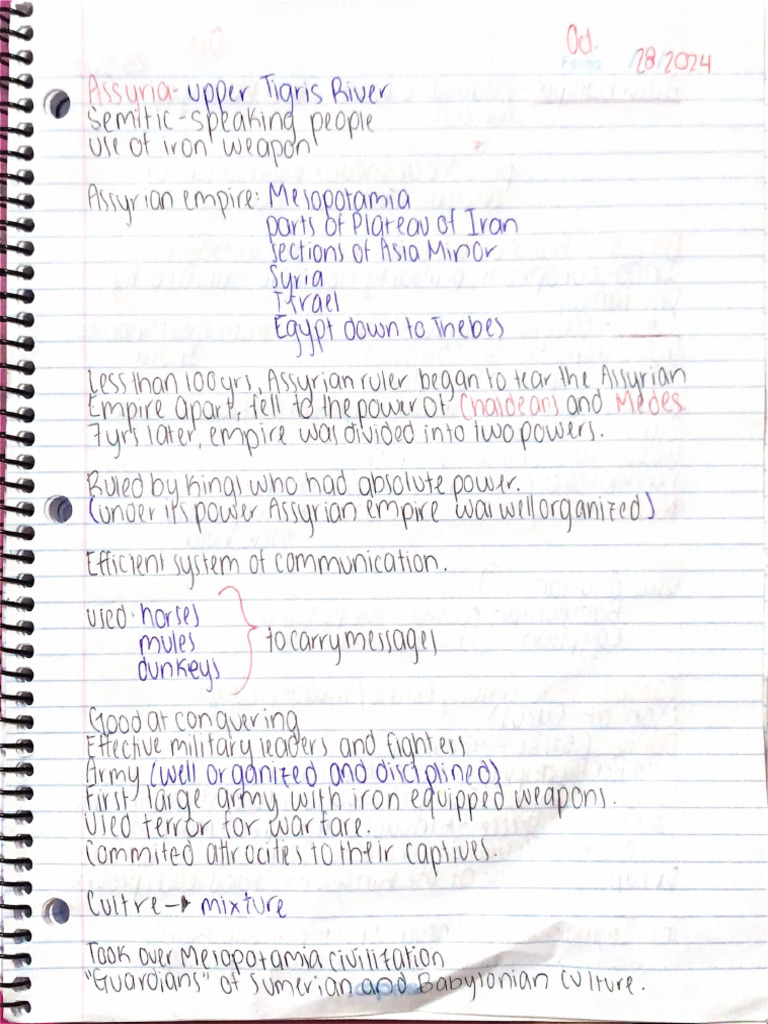 Oct.
Fecha 28/2024
Assyria- upper Tigris River
Semitic-speaking people
use of iron weapon
Assyrian empire: Mesopotamia
parts of Plateau of Iran
sections of Asia Minor
Syria
Israel
Egypt down to Thebes
Less than 100 yrs, Assyrian ruler began to tear the Assyrian
Empire apart, fell to the power of Chaldeans and Medes.
7yrs later, empire was divided into two powers.
Ruled by kings who had absolute power.
(under its power Assyrian empire was well organized)
Efficient system of communication.
used: horses
mules
dunkeys
to carry messages
Good at conquering
Effective military leaders and fighters
Army (well organized and disciplined)
First large army with iron equipped weapons.
Used terror for warfare.
Commited attrocities to their captives.
Cultre → mixture
Took over Mesopotamia civilization
"Guardians" of Sumerian and Babylonian culture.